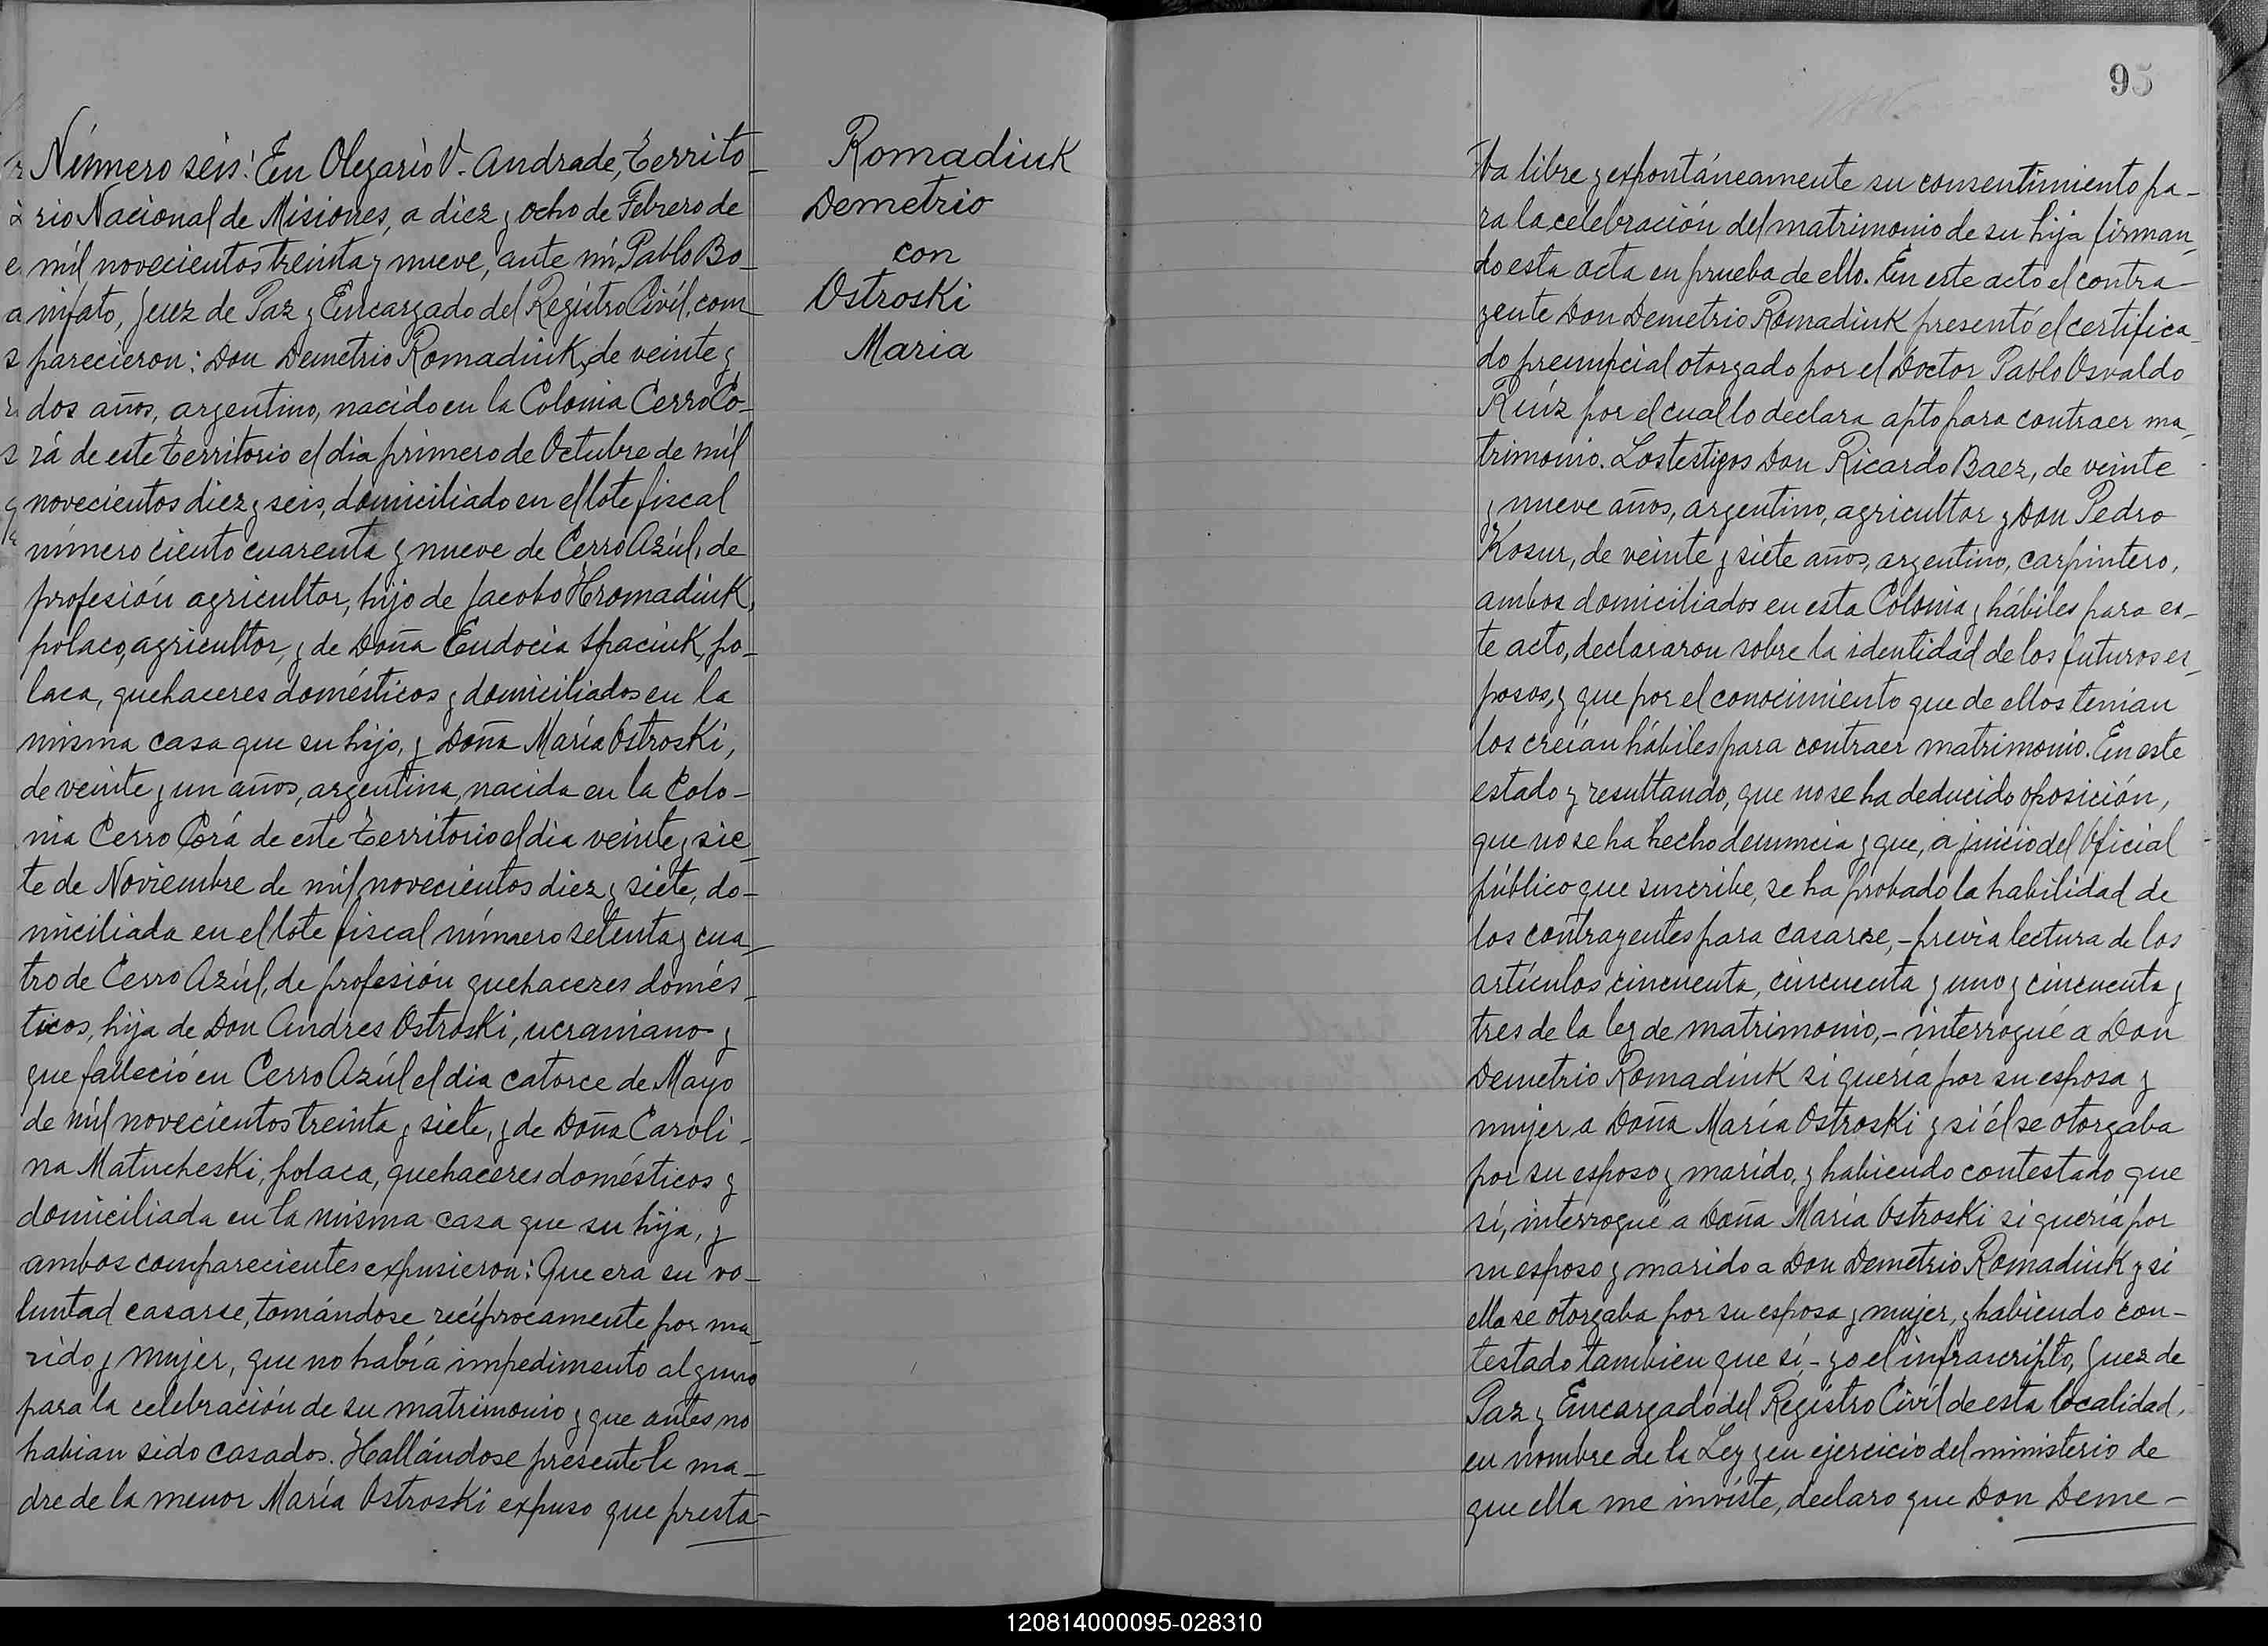 Número seis: En Olegario V. Andrade, Territo-
rio Nacional de Misiones, a diez y ocho de Febrero de
mil novecientos treinta y nueve, ante mí, Pablo Bo-
nifato, Juez de Paz y Encargado del Registro Civil, com-
parecieron: Don Demetrio Romadiuk, de veinte y
dos años, argentino, nacido en la Colonia Cerro Co-
rá de este Territorio el dia primero de Octubre de mil
novecientos diez y seis, domiciliado en el lote fiscal
número ciento cuarenta y nueve de Cerro Azúl, de
profesión agricultor, hijo de Jacobo Hromadiuk,
polaco, agricultor, y de Doña Eudocia Spaciuk, po-
laca, quehaceres domésticos y domiciliados en la
misma casa que su hijo, y Doña María Ostroski,
de veinte y un años, argentina, nacida en la Colo-
nia Cerro Corá de este Territorio el dia veinte y sie-
te de Noviembre de mil novecientos diez y siete, do-
miciliada en el lote fiscal número setenta y cua-
tro de Cerro Azúl, de profesión quehaceres domés-
ticos, hija de Don Andres Ostroski, ucraniano y
que falleció en Cerro Azúl el dia catorce de Mayo
de mil novecientos treinta y siete, y de Doña Caroli-
na Matucheski, polaca, quehaceres domésticos y
domiciliada en la misma casa que su hija, y
ambos comparecientes expusieron: Que era su vo-
luntad casarse, tomándose recíprocamente por ma-
rido y mujer, que no había impedimento alguno
para la celebración de su matrimonio y que antes no
habian sido casados. Hallándose presente la ma-
dre de la menor María Ostroski expuso que presta-
Romadiuk
Demetrio
con
Ostroski
Maria
95
ba libre y expontáneamente su consentimiento pa-
ra la celebración del matrimonio de su hija firman-
do esta acta en prueba de ello. En este acto el contra-
yente Don Demetrio Romadiuk presentó el certifica-
do prenupcial otorgado por el Doctor Pablo Osvaldo
Ruíz por el cual lo declara apto para contraer ma-
trimonio. Los testigos Don Ricardo Baez, de veinte
y nueve años, argentino, agricultor y Don Pedro
Kosur, de veinte y siete años, argentino, carpintero,
ambos domiciliados en esta Colonia y hábiles para es-
te acto, declararon sobre la identidad de los futuros es-
posos, y que por el conocimiento que de ellos tenían
los creían hábiles para contraer matrimonio. En este
estado y resultando, que no se ha deducido oposición,
que no se ha hecho denuncia y que, a juicio del Oficial
público que suscribe, se ha probado la habilidad de
los contrayentes para casarse, - previa lectura de los
artículos cincuenta, cincuenta y uno y cincuenta y
tres de la ley de matrimonio, - interrogué a Don
Demetrio Romadiuk si quería por su esposa y
mujer a Doña María Ostroski y si él se otorgaba
por su esposo y marido, y habiendo contestado que
sí, interrogué a Doña María Ostroski si quería por
su esposo y marido a Don Demetrio Romadiuk y si
ella se otorgaba por su esposa y mujer, y habiendo con-
testado tambien que sí - yo el infrascripto, Juez de
Paz y Encargado del Registro Civil de esta localidad,
en nombre de la Ley y en ejercicio del ministerio de
que ella me inviste, declaro que Don Deme-
120814000095-028310